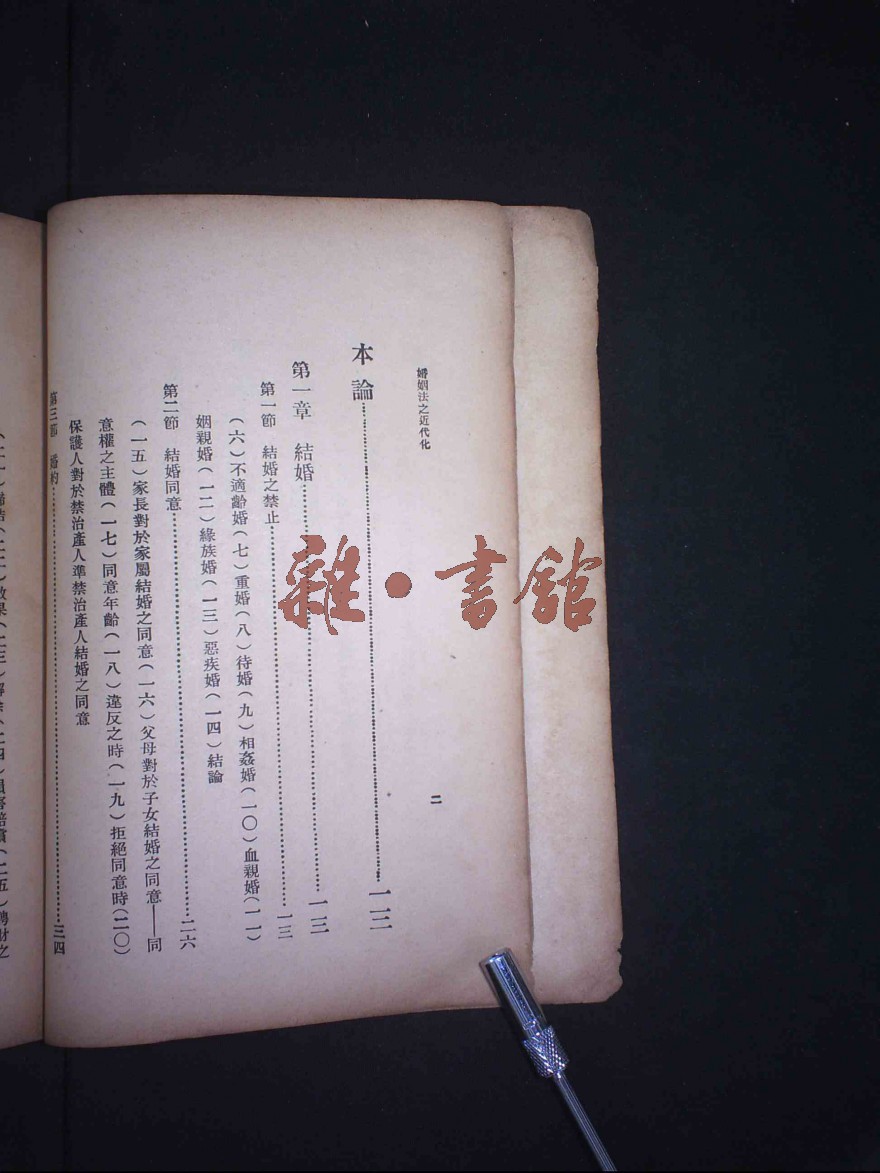 婚姻法之近代化
二
本論……一三
第一章 結婚……一三
第一節 結婚之禁止……一三
(六)不適齡婚(七)重婚(八)待婚(九)相姦婚(一〇)血親婚(一一)
姻親婚(一二)緣族婚(一三)惡疾婚(一四)結論
第二節 結婚同意……二六
(一五)家長對於家屬結婚之同意(一六)父母對於子女結婚之同意——同
意權之主體(一七)同意年齡(一八)違反之時(一九)拒絕同意時(二〇)
保護人對於禁治產人準禁治產人結婚之同意
第三節 婚約……三四
雜·書館